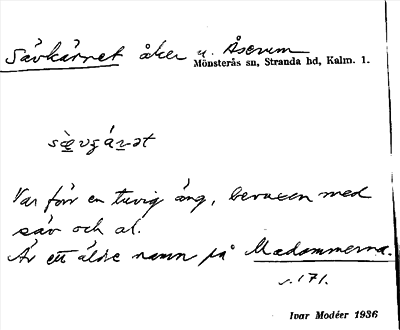 Sävkärret åker u. Åserum
Mönsterås sn, Stranda hd, Kalm. l.
Var förr en tuvig äng, bevuxen med
säv och al.
Är ett äldre namn på Madammerna.
s. 171.
Ivar Modéer 1936